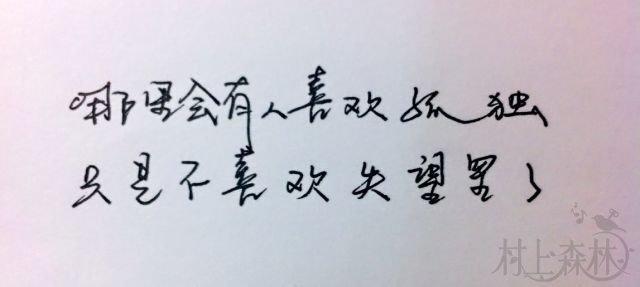 哪里会有人喜欢孤独
只是不喜欢失望罢了
村上森林